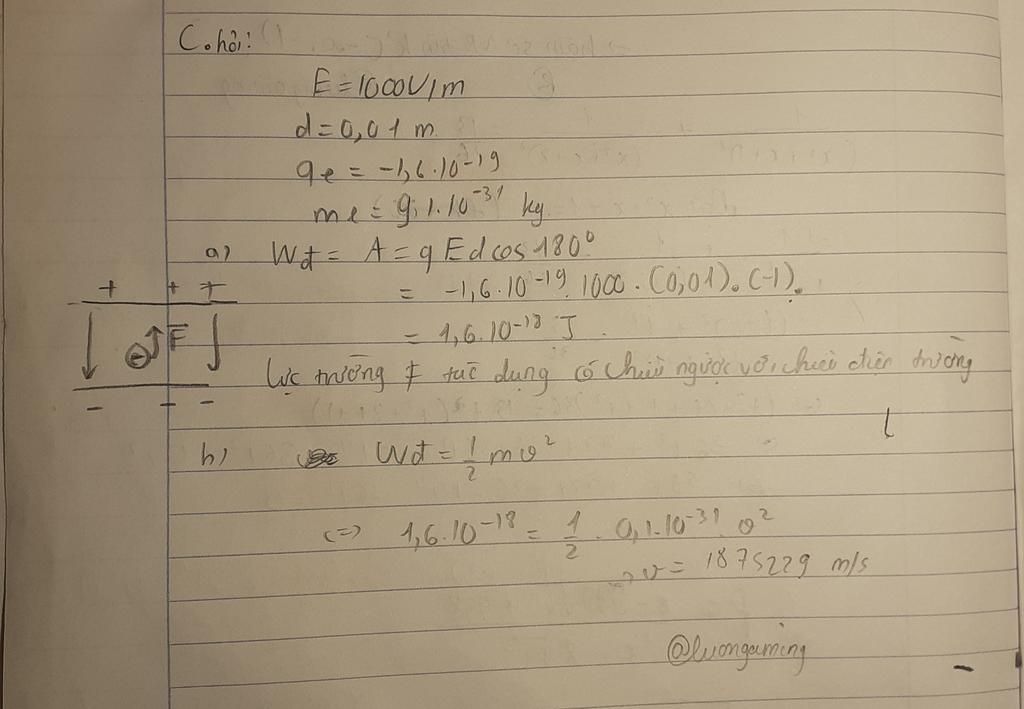 C.hỏi:
E = 1000V/m
d = 0,01 m
qe = -1,6.10⁻¹⁹
me = 9,1.10⁻³¹ kg
a) Wđ = A = qEdcos180⁰
= -1,6.10⁻¹⁹.1000.(0,01).(-1).
= 1,6.10⁻¹⁸ J
+ + +
F
- - -
Lực trường F tác dụng có chiều ngược với chiều điện trường
b) Wđ = 1/2 mv²
<=> 1,6.10⁻¹⁸ = 1/2 . 9,1.10⁻³¹ v²
→ v = 1875229 m/s
@luongaming